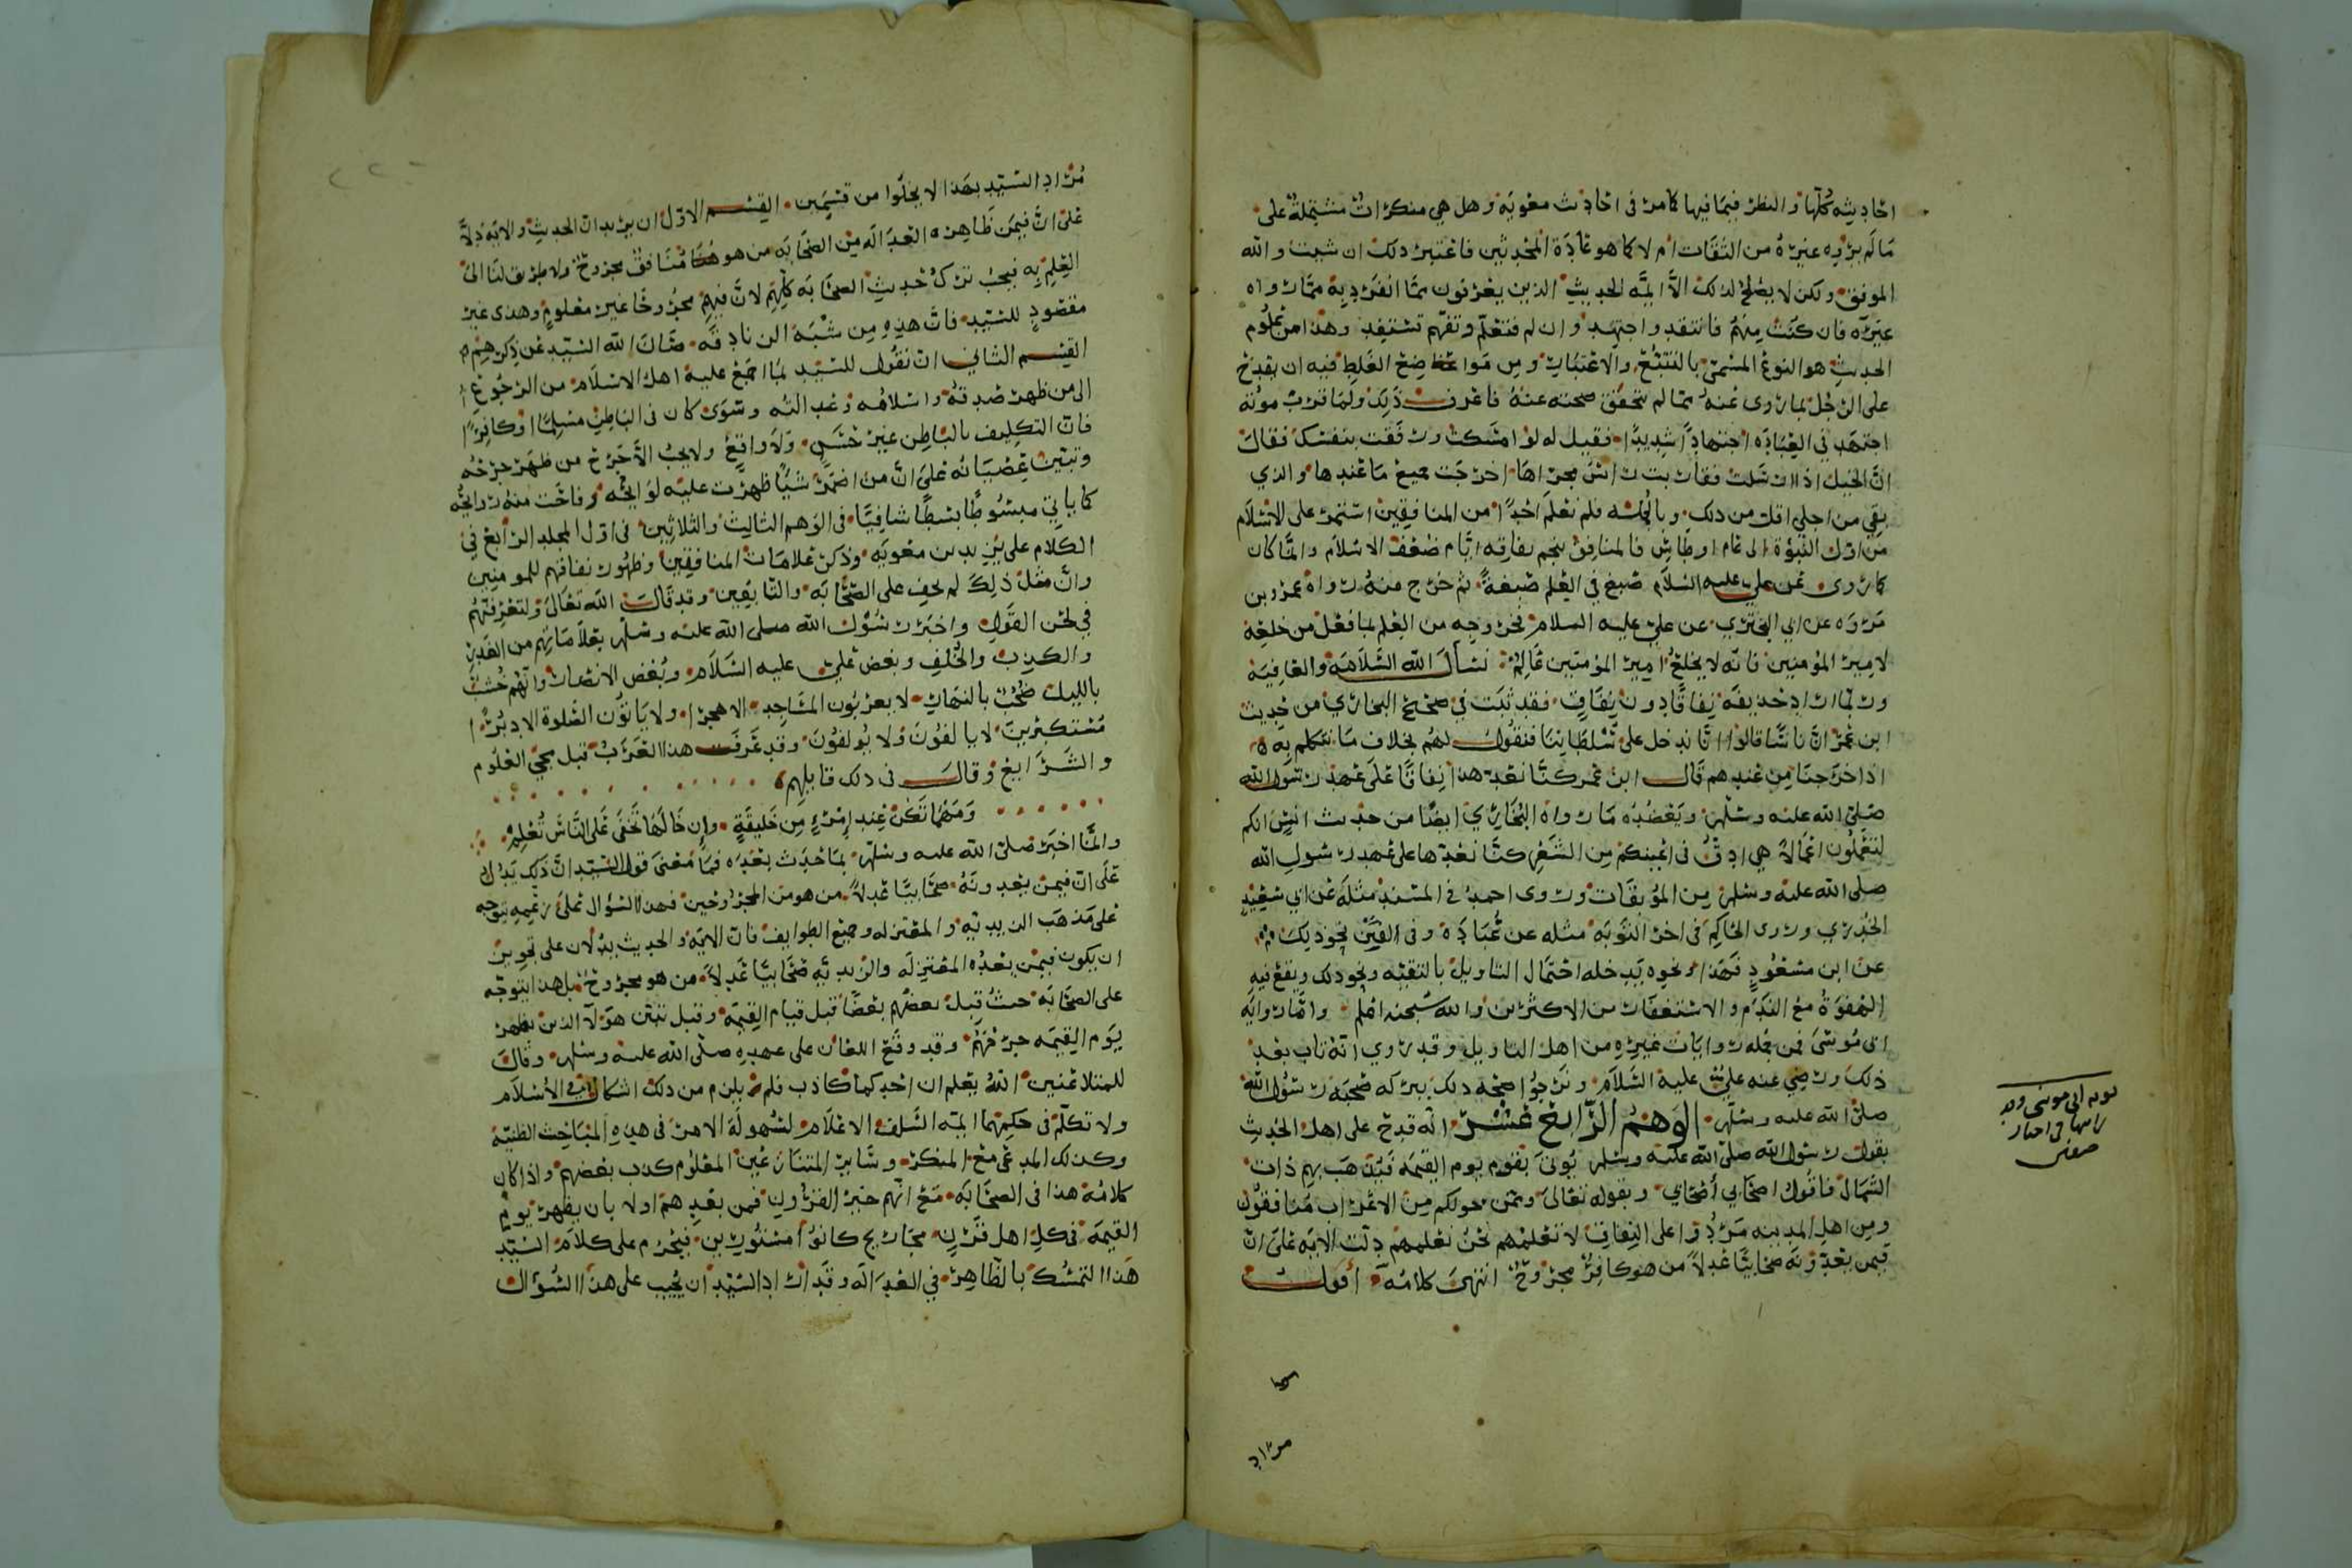 احاديثه كلها والنظر فيما فيها كما مر في احاديث معوية وهل هي منكرات مشتملة على
ما لم يروه غيره من الثقات ام لا كما هو عادة المحدثين فاعتبر ذلك ان شيت والله
الموفق ولكن لا يصلح لذلك الا ايمة الحديث الذين يعرفون ما انفرد به مما رواه
غيره فان كنت منهم فانتقد واجتهد وان لم فتعلم وتفهم تستفد وهذا من علوم
الحديث هو النوع المسمى بالتتبع والاعتبار ومن مواضع الغلط فيه ان يقدح
على الرجل بما روى عنه مما لم تتحقق صحته عنه فاعرف ذلك ولما قرب موته
اجتهد في العبادة اجتهادا شديدا فقيل له لو امسكت ورفقت بنفسك فقال
ان الخيل اذا ارسلت فقاربت راس مجراها اخرجت جميع ما عندها والذي
بقي من اجلي اقل من ذلك وبالجملة فلم نعلم احدا من المنافقين استمر على الاسلام
من اول النبوة الى عام اوطاس فالمنافق ينجم نفاقه ايام ضعف الاسلام وانما كان
كما روى عن علي عليه السلام صبغ في العلم صبغة ثم خرج منه رواه عمرو بن
مرة عن ابي البختري عن علي عليه السلام فخروجه من العلم بما فعل من خلعه
لامير المؤمنين فانه لا يخلع امير المؤمنين عالم نسأل الله السلامة والعافية
وربما اراد حذيفة نفاقا دون نفاق فقد ثبت في صحيح البخاري من حديث
ابن عمر ان ناسا قالوا انا ندخل على سلطاننا فنقول لهم بخلاف ما نتكلم به
اذا خرجنا من عندهم قال ابن عمر كنا نعد هذا نفاقا على عهد رسول الله
صلى الله عليه وسلم ويعضده ما رواه البخاري ايضا من حديث انس انكم
لتعملون اعمالا هي ادق في اعينكم من الشعر كنا نعدها على عهد رسول الله
صلى الله عليه وسلم من الموبقات وروى احمد في المسند مثله عن ابي سعيد
الخدري وروى الحاكم في اخر التوبة مثله عن عبادة وفي الفتن نحو ذلك
عن ابن مسعود فهذا ونحوه يدخله احتمال التاويل بالتقية ونحو ذلك ويقع فيه
الهفوة مع الندم والاستغفار من الاكثرين والله سبحنه اعلم واما رواية
ابي موسى فمن جملة روايات غيره من اهل التاويل وقد روي انه تاب بعد
ذلك ورضي عنه علي عليه السلام ونرجوا صحة ذلك ببركة صحبة رسول الله
صلى الله عليه وسلم الوهم الرابع عشر انه قدح على اهل الحديث
بقول رسول الله صلى الله عليه وسلم يوتى بقوم يوم القيمة فيذهب بهم ذات
الشمال فاقول اصحابي أصحابي وبقوله تعالى وممن حولكم من الاعراب منافقون
ومن اهل المدينه مردوا على النفاق لا تعلمهم نحن نعلمهم دلت الاية على ان
فيمن يعدونه صحابيا عدلا من هو كافر مجروح انتهى كلامه أقول
مراد
توبه ابي موسى
مراد السيد بهذا لا يخلوا من قسمين القسم الاول ان يريد ان الحديث والاية دلا
على ان فيمن ظاهره العدالة من الصحابه من هو منافق مجروح ولا طريق لنا الى
العلم به فيجب ترك حديث الصحابة كلهم لان فيهم مجروحا غير معلوم وهذى غير
مقصود للسيد فان هذه من شبه الزنادقه صان الله السيد عن ذكرهم
القسم الثاني ان نقول للسيد لما اجمع عليه اهل الاسلام من الرجوع
الى من ظهر صدقه واسلامه وعدالته وسوى كان في الباطن مسلما او كافرا
فان التكليف بالباطن غير حسن ولا واقع ولا يجب الا جرح من ظهر جرحه
وتبين عصيانه على ان من اضمر شيا ظهرت عليه لوايحه وفاحت منه روايحه
كما ياتي مبسوطا بسطا شافيا في الوهم الثالث والثلاثين في اول المجلد الرابع في
الكلام على يزيد بن معويه وذكر علامات المنافقين وظهور نفاقهم للمومنين
وان مثل ذلك لم يخف على الصحابة والتابعين وقد قال الله تعالى ولتعرفنهم
في لحن القول واخبر رسول الله صلى الله عليه وسلم بعلاماتهم من الغدر
والكذب والخلف وبغض علي عليه السلام وبغض الانصار وانهم خشب
بالليل صخب بالنهار لا يعربون المساجد الا هجرا ولا ياتون الصلوة الا دبرا
مستكبرين لا يالفون ولا يولفون وقد عرفت هذا العرب قبل مجي العلوم
والشرايع وقال في ذلك قايلهم
ومهما تكن عند امرئ من خليقة وان خالها تخفى على الناس تعلم
وانما اخبر صلى الله عليه وسلم بما حدث بعده فما معنى قول السيد ان ذلك يدل
على ان فيمن يعدونه صحابيا عدلا من هو من المجروحين فهذا السؤال على زعمه يتوجه
على مذهب الزيديه والمعتزله وجميع الطوايف فان الايه والحديث يدلان على تجويز
ان يكون فيمن يعده المعتزله والزيديه صحابيا عدلا من هو مجروح بل هذا يتوجه
على الصحابة حيث قبل بعضهم بعضا قبل قيام القيمة وقبل تبين هولا الذين يظهر
يوم القيمه جرحهم وقد وقع اللعان على عهده صلى الله عليه وسلم وقال
للمتلاعنين الله يعلم ان احدكما كاذب فلم يلزم من ذلك اشكال في الاسلام
ولا تكلم في حكمهما ايمة السلف الاعلام لسهولة الامر في هذه المباحث الظنية
وكذلك المدعي مع المنكر وساير المتنازعين المعلوم كذب بعضهم واذا كان
كلامه هذا في الصحابه مع انهم خير القرون فمن بعدهم اولى بان يظهر يوم
القيمة في كل اهل قرن مجاريح كانوا مستورين فيحرم على كلام السيد
هذا التمسك بالظاهر في العدالة وقد اراد السيد ان يجيب على هذا السؤال